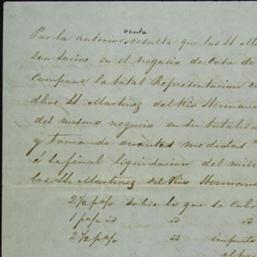 venta
Por la anterior resulta que los SS. M
son socios, en el negocio de Casa de
Compañe la total Representacion
dhos SS. Martinez del Rio Hermanos
del mismo negocio en su totalida
y tomando cuantas medidas
á la final liquidacion del mism
los SS. Martinez del Rio Hermano
2½ p% sobre lo que se
1 p% id id id
2½ p% id importe